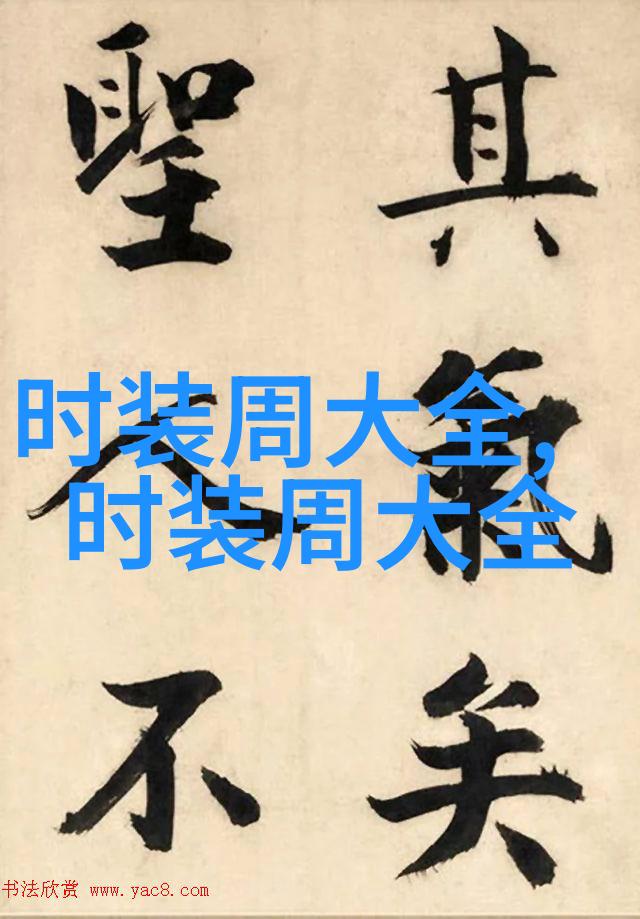 其氣矣
聖人不
时装周大全,
时装周大全
书法欣赏 www.yac8.com